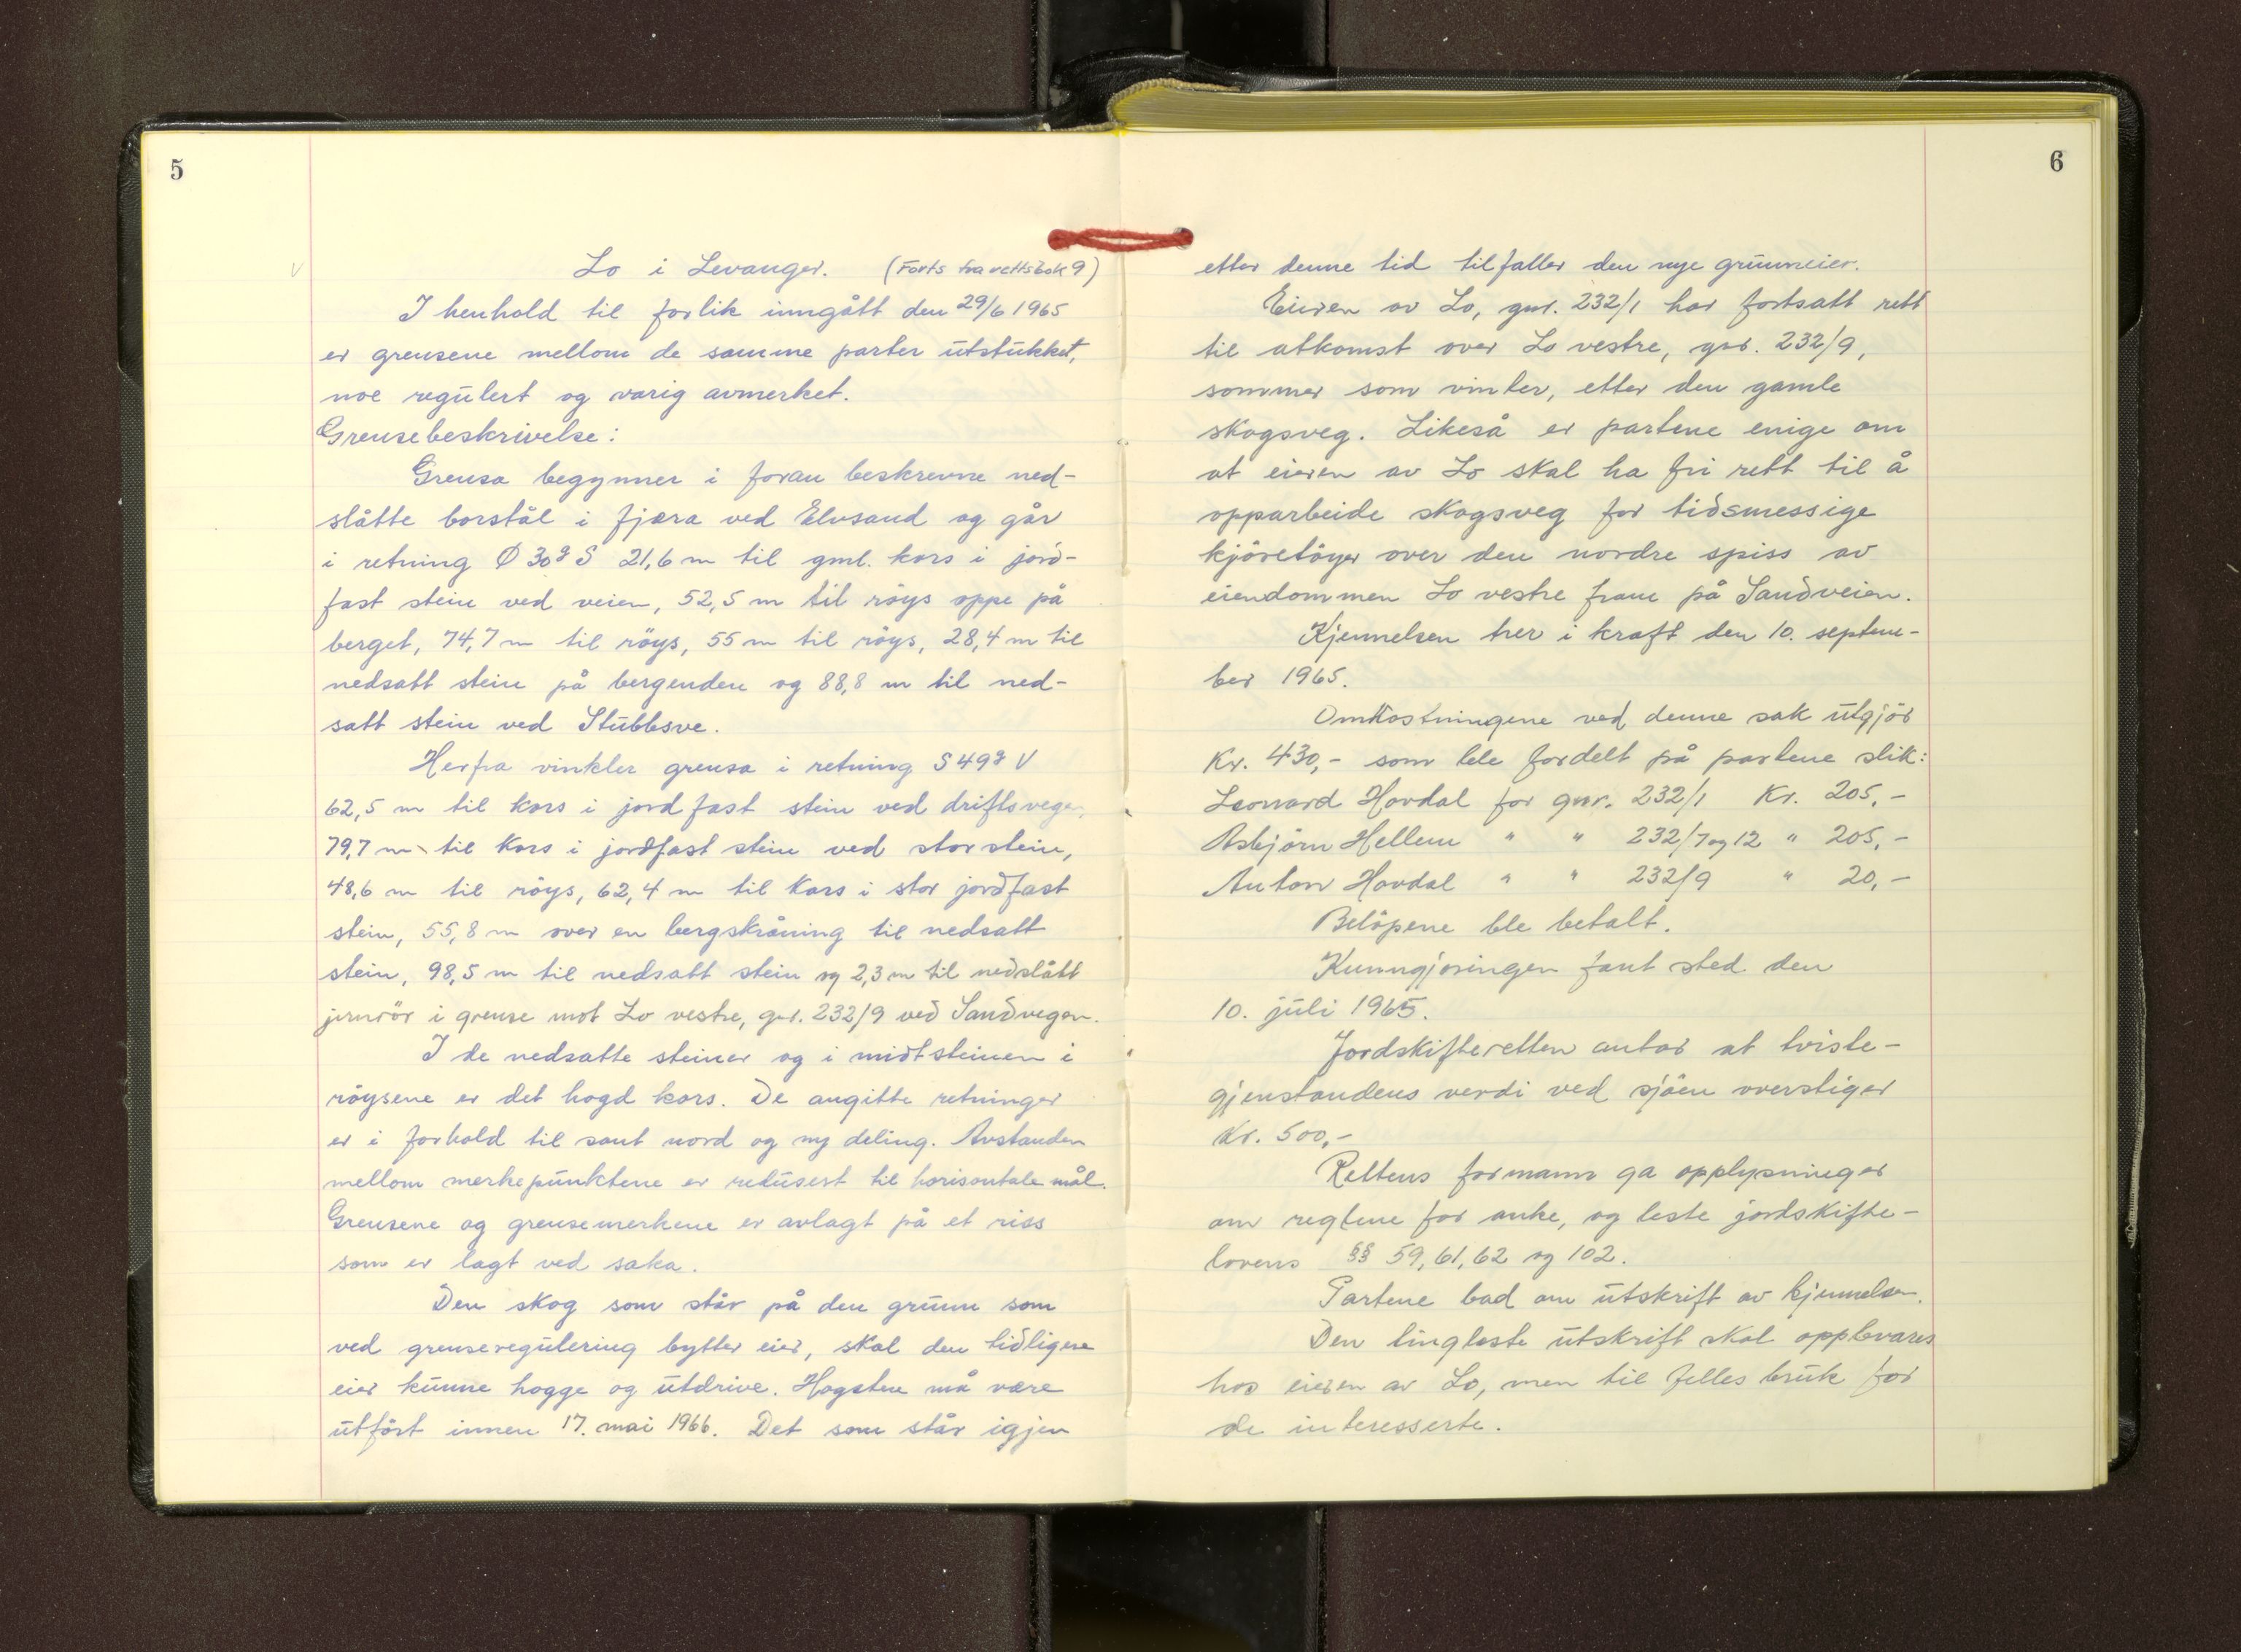 5
Lo i Levanger. (Forts fra rettsbok 9)
I henhold til forlik inngått den 29/6 1965
er grensene mellom de samme parter utstukket,
noe regulert og varig avmerket.
Grensebeskrivelse:
Grensa begynner i foran beskrevne ned-
slåtte borstål i fjæra ved Elvsand og går
i retning Ø 30g S 21,6 m til gml. kors i jord-
fast stein ved veien, 52,5 m til röys oppe på
berget, 74,7 m til röys, 55 m til röys, 28,4 m til
nedsatt stein på bergenden og 88,8 m til ned-
satt stein ved Stubbsve.
Herfra vinkler grensa i retning S 49g V
62,5 m til kors i jordfast stein ved driftsvegen,
79,7 m til kors i jordfast stein ved storstein,
48,6 m til röys, 62,4 m til kors i stor jordfast
stein, 55,8 m over en bergskråning til nedsatt
stein, 98,5 m til nedsatt stein og 2,3 m til nedslått
jernrör i grense mot Lo vestre, gnr. 232/9 ved Sandvegen.
I de nedsatte steiner og i midtsteinen i
röysene er det hogd kors. De angitte retninger
er i forhold til sant nord og ny deling. Avstanden
mellom merkepunktene er redusert til horisontale mål.
Grensene og grensemerkene er avlagt på et riss
som er lagt ved saka.
Den skog som står på den grunn som
ved grenseregulering bytter eier, skal den tidligere
eier kunne hogge og utdrive. Hogsten må være
utfört innen 17. mai 1966. Det som står igjen
6
etter denne tid tilfaller den nye grunneier.
Eieren av Lo, gnr. 232/1 har fortsatt rett
til atkomst over Lo vestre, gnr. 232/9,
sommer som vinter, etter den gamle
skogsveg. Likeså er partene enige om
at eieren av Lo skal ha fri rett til å
opparbeide skogsveg for tidsmessige
kjöretöyer over den nordre spiss av
eiendommen Lo vestre fram på Sandveien.
Kjennelsen trer i kraft den 10. septem-
ber 1965.
Omkostningene ved denne sak utgjör
Kr. 430,- som ble fordelt på partene slik:
Leonard Hovdal for gnr. 232/1 Kr. 205,-
Asbjörn Hellem " " 232/7 og 12 " 205,-
Anton Hovdal " " 232/9 " 20,-
Belöpene ble betalt.
Kunngjoringen fant sted den
10. juli 1965.
Jordskifteretten antar at tviste-
gjenstandens verdi ved sjöen overstiger
Kr. 500,-
Rettens formann ga opplysninger
om reglene for anke, og leste jordskifte-
lovens §§ 59, 61, 62 og 102.
Partene bad om utskrift av kjennelsen.
Den tingleste utskrift skal oppbevares
hos eieren av Lo, men til felles bruk for
de interesserte.